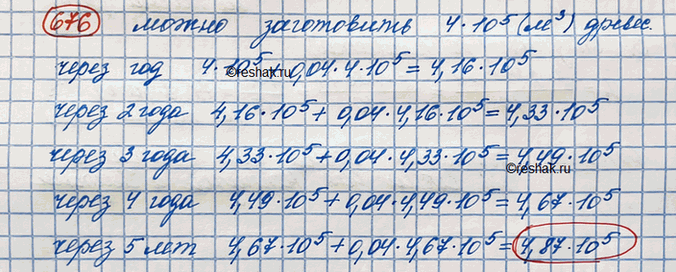 676 можно заготовить 4·10⁵ (м³) древес.
через год 4·10⁵ + 0,04·4·10⁵ = 4,16·10⁵
©reshak.ru
через 2 года 4,16·10⁵ + 0,04·4,16·10⁵ = 4,33·10⁵
через 3 года 4,33·10⁵ + 0,04·4,33·10⁵ = 4,49·10⁵
©reshak.ru
через 4 года 4,49·10⁵ + 0,04·4,49·10⁵ = 4,67·10⁵
через 5 лет 4,67·10⁵ + 0,04·4,67·10⁵ = 4,87·10⁵